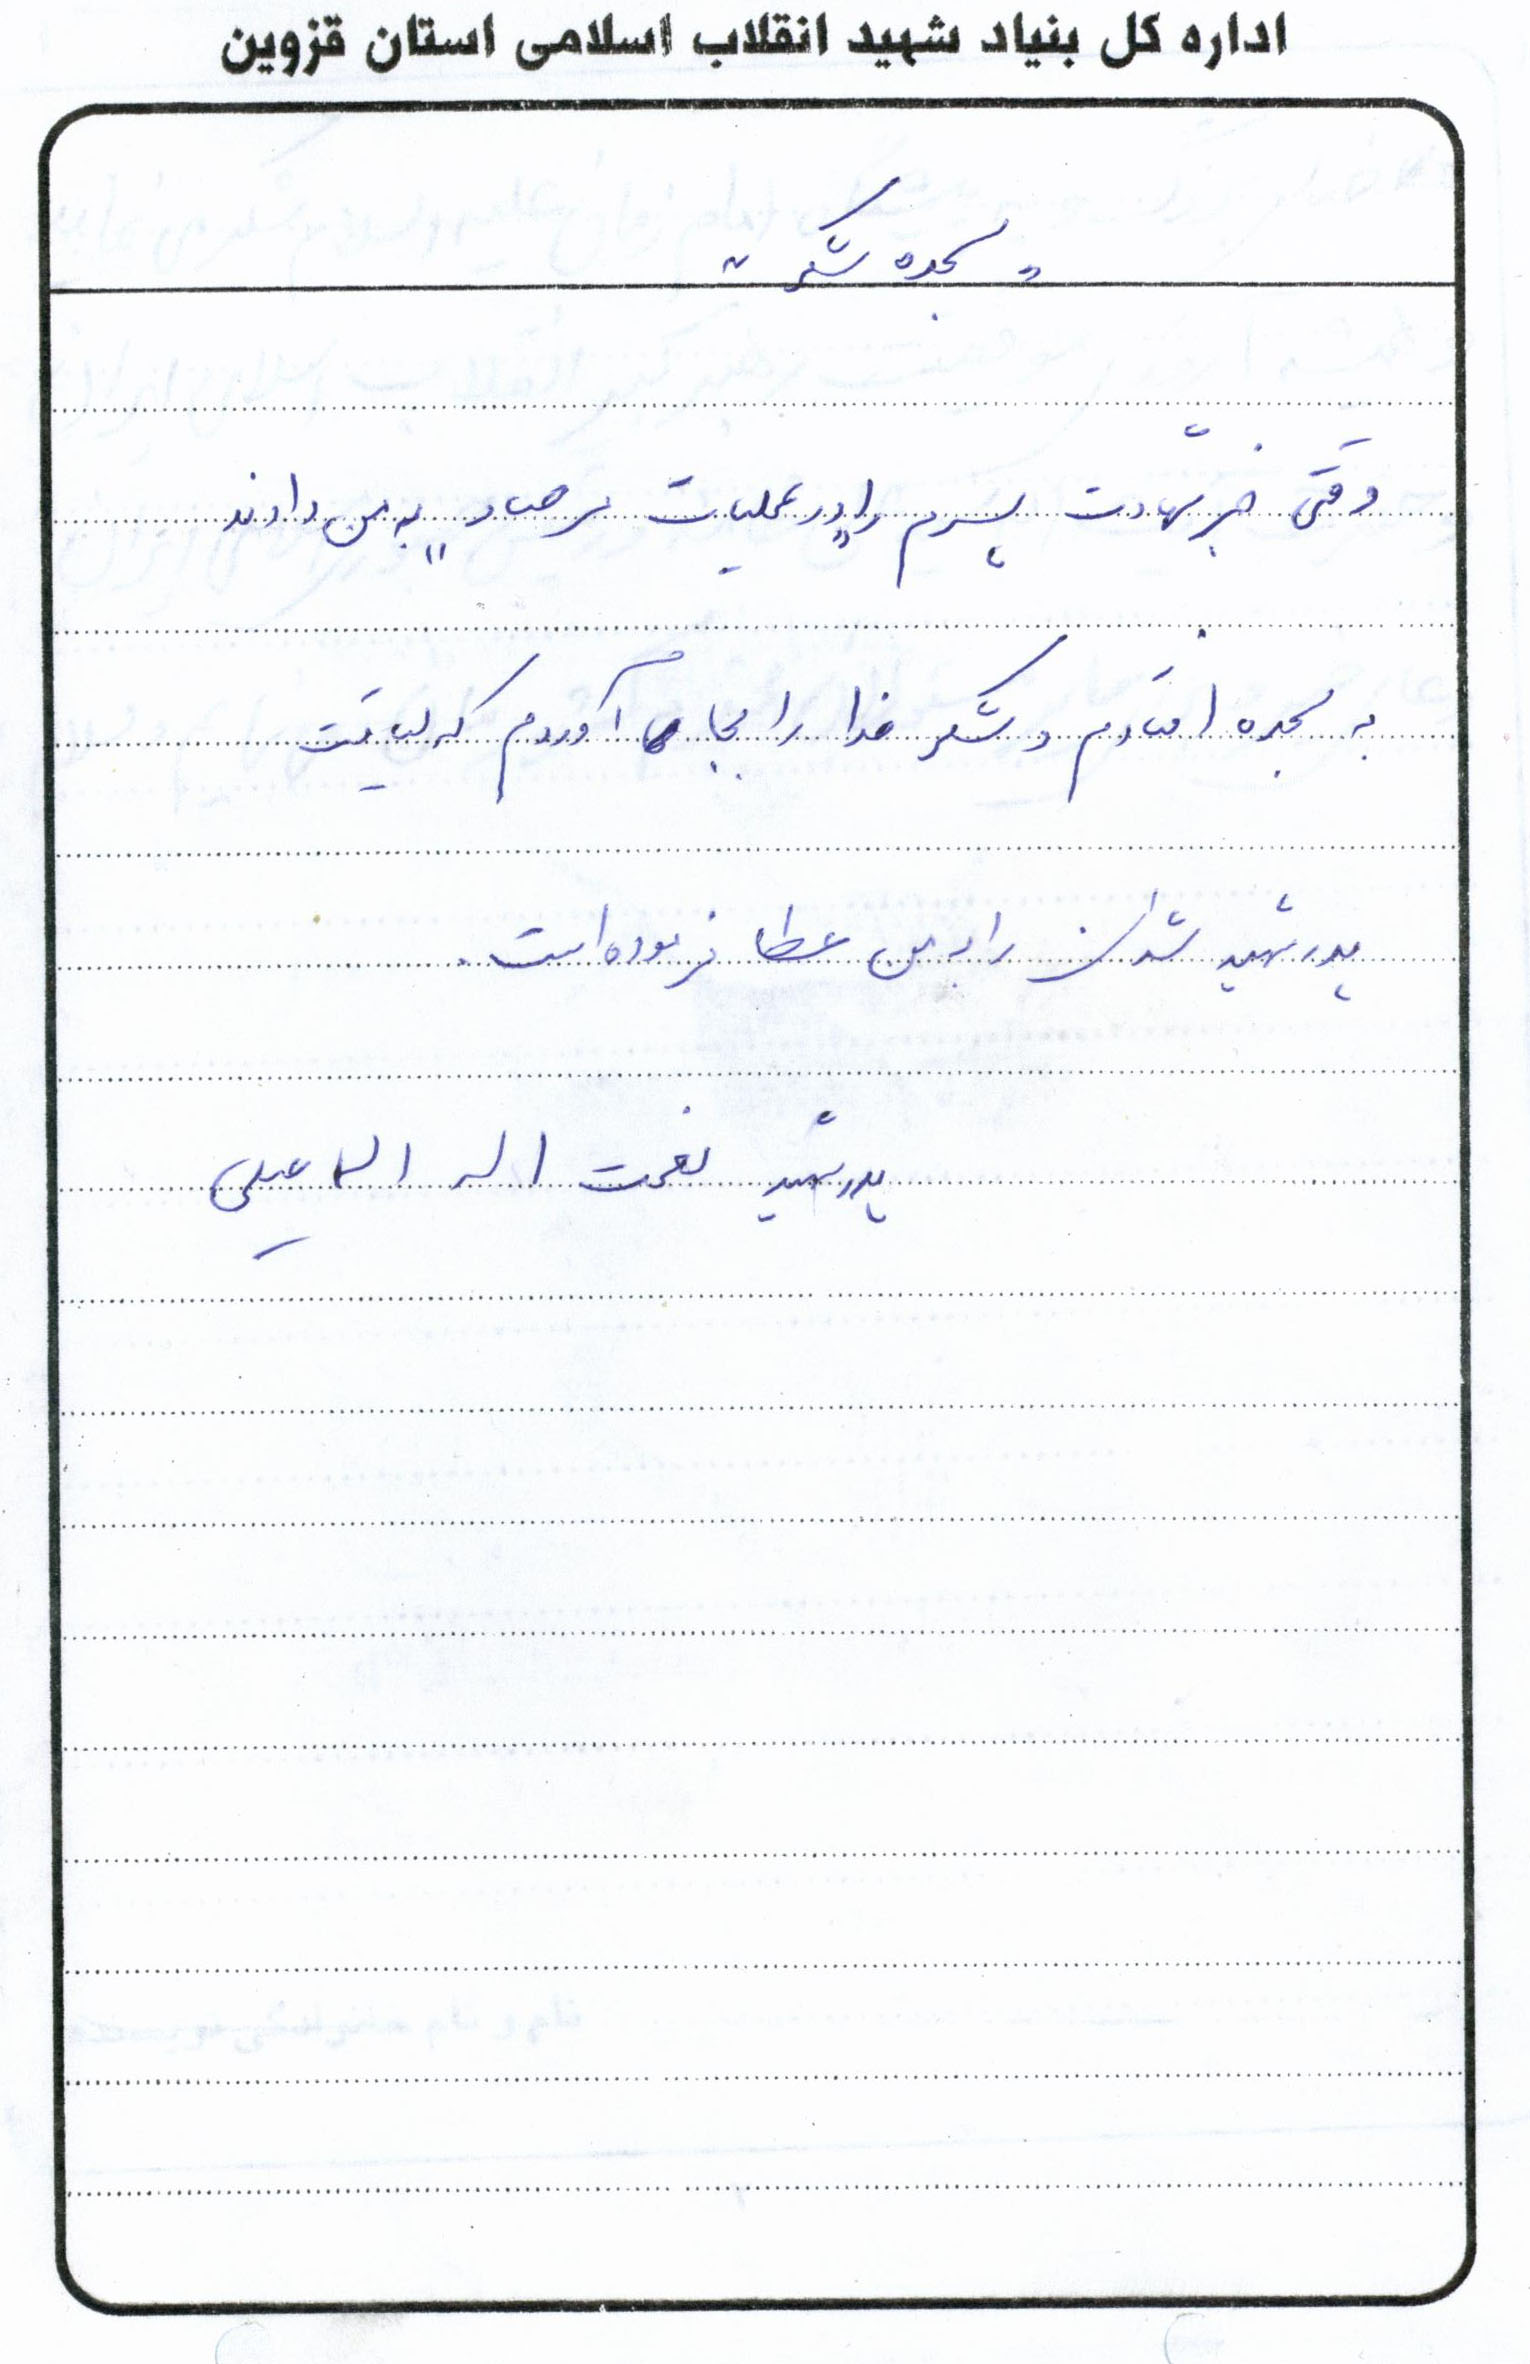 اداره کل بنیاد شهید انقلاب اسلامی استان قزوین
" سجده شکر "
وقتی خبر شهادت پسرم را در "عملیات مرصاد" به من دادند
به سجده افتادم و شکر خدا را بجا آوردم که لیاقت
پدر شهید شدن را به من عطا فرموده است.
پدر شهید نعمت اله اسماعیلی